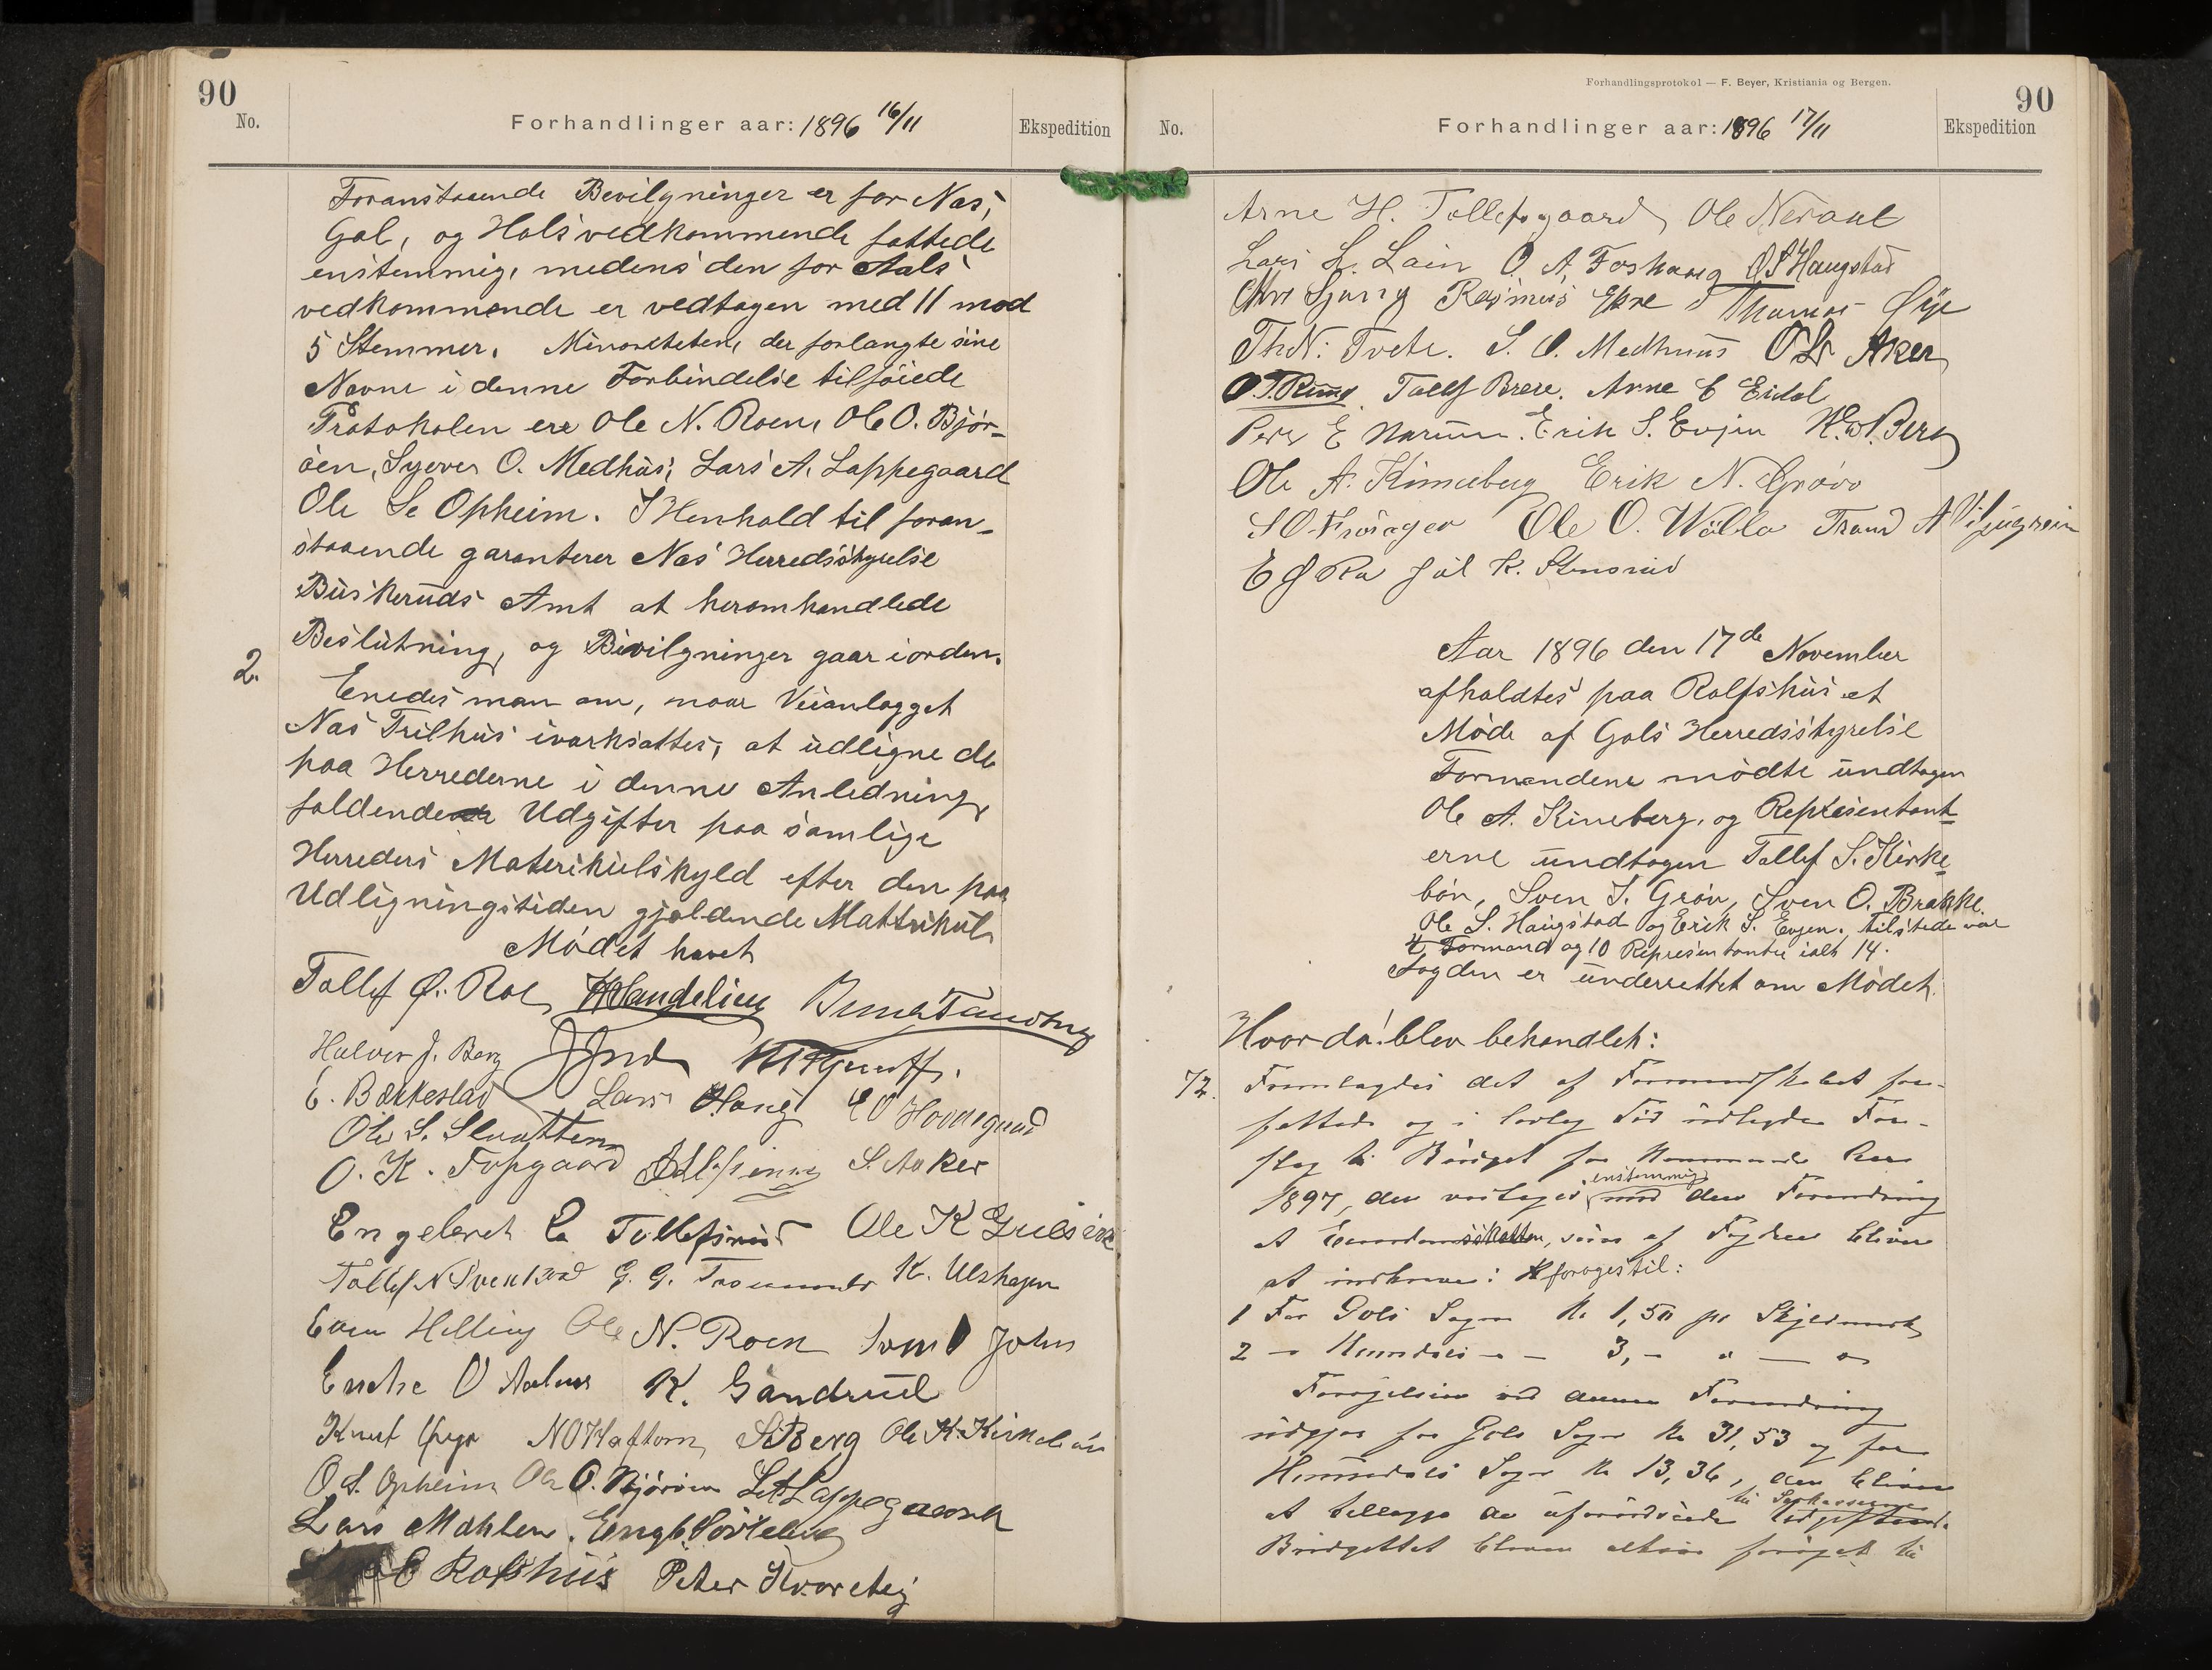 90
No.
Forhandlinger aar: 1896 16/11
Ekspedition
Foranstaaende Bevilgninger er for Nes,
Gol, og Hols vedkommende fattede
enstemmig, medens den for Aals
vedkommende er vedtagen med 11 mod
5 Stemmer. Minoriteten, der forlangte sine
Navne i denne Forbindelse tilføiede
Protokolen ere Ole N. Roen, Ole O. Bjør-
øen, Syver O. Medhus, Lars A. Lappegaard
Ole S. Opheim. I Henhold til foran-
staaende garanterer Nes Herredsstyrelse
Buskeruds Amt at heromhandlede
Beslutning, og Bevilgninger gaar iorden.
2.
Enedes man om, naar Veianlægget
Nes Trilhus iværksættes, at udligne de
paa Herrederne i denne Anledning
faldende Udgifter paa samlige
Herreders Materikulskyld efter den paa
Udligningstiden gjældende Mattrikul
Mødet hævet
Tollef Ø. Roe
Halvor J. Berg
E. Bækkestad Lars Haug
Ole S. Slaatten
O. K. Tofsgaard S. Aaker
Engebret E. Tollefsrud Ole K Gulsvik
Tollef N Svenkrud G. G. K. Ulshagen
Even Helling Ole N. Roen John
K. Gandrud
Knut N O Haftorn S Berg Ole K. Kirkebøn
O S. Opheim Ole O. Bjørøen L A Lappegaard
Lars Mahlen.
E Rolfshus Peter Kvarteig
Forhandlingsprotokol — F. Beyer, Kristiania og Bergen.
90
No.
Forhandlinger aar: 1896 17/11
Ekspedition
Arne H. Tollefsgaard, Ole Neraal
Lars L. Lain O. A. Foshaug O S Haugstad
Rasmus Thomas Øye
Th. N. Tveto. S. O. Medhuus O L Aker
O. T. Ruud. Tollef Brere. Arne E Eidal
Per E Narum. Erik S. Evjen H. W. Berg
Ole A. Kinneberg Erik N. Grøvo
Ole O. Wøllo Trand A Viljugrein
K. Stensrud
Aar 1896 den 17de November
afholdtes paa Rolfshus et
Møde af Gols Herredsstyrelse
Formændene mødte undtagen
Ole A. Kineberg, og Repræsentant-
erne undtagen Tollef S. Kirke-
bøn, Sven T. Grøv, Sven O. Brakke
Ole S. Haugstad og Erik S. Evjen. Tilstede var
4 Formænd og 10 Repræsentanter ialt 14.
Fogden er underrettet om Mødet.
Hvor da blev behandlet:
72.
Fremlagdes det af Formandskabet for-
fattede og i lovlig Tid udlagde For-
slag til Budget for kommende Aar
1897, der vedtages enstemmig med den Forandring
at Eiendomsskatten, som af Fogden bliver
at indkræve: forøges til:
1 For Gols Sogn Kr 1,50 pr Skyldmark
2 — Hemsdals — — 3,— " — "
Forøgelsen ved denne Forandring
udgjør for Gols Sogn Kr 31,53 og for
Hemsedals Sogn Kr 13,36, der bliver
at tillægge de uforudseede til Udgifter
Budgettet bliver altsaa forøget til